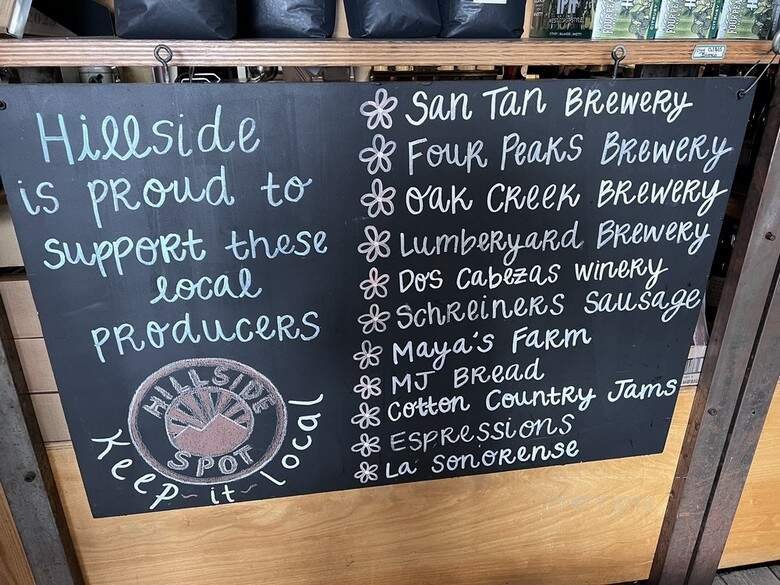 Hillside
is proud to
support these
local
producers
HILLSIDE
SPOT
Keep-it-local
San Tan Brewery
Four Peaks Brewery
Oak Creek Brewery
Lumberyard Brewery
Dos Cabezas Winery
Schreiners Sausage
Maya's Farm
MJ Bread
Cotton Country Jams
Espressions
La Sonorense